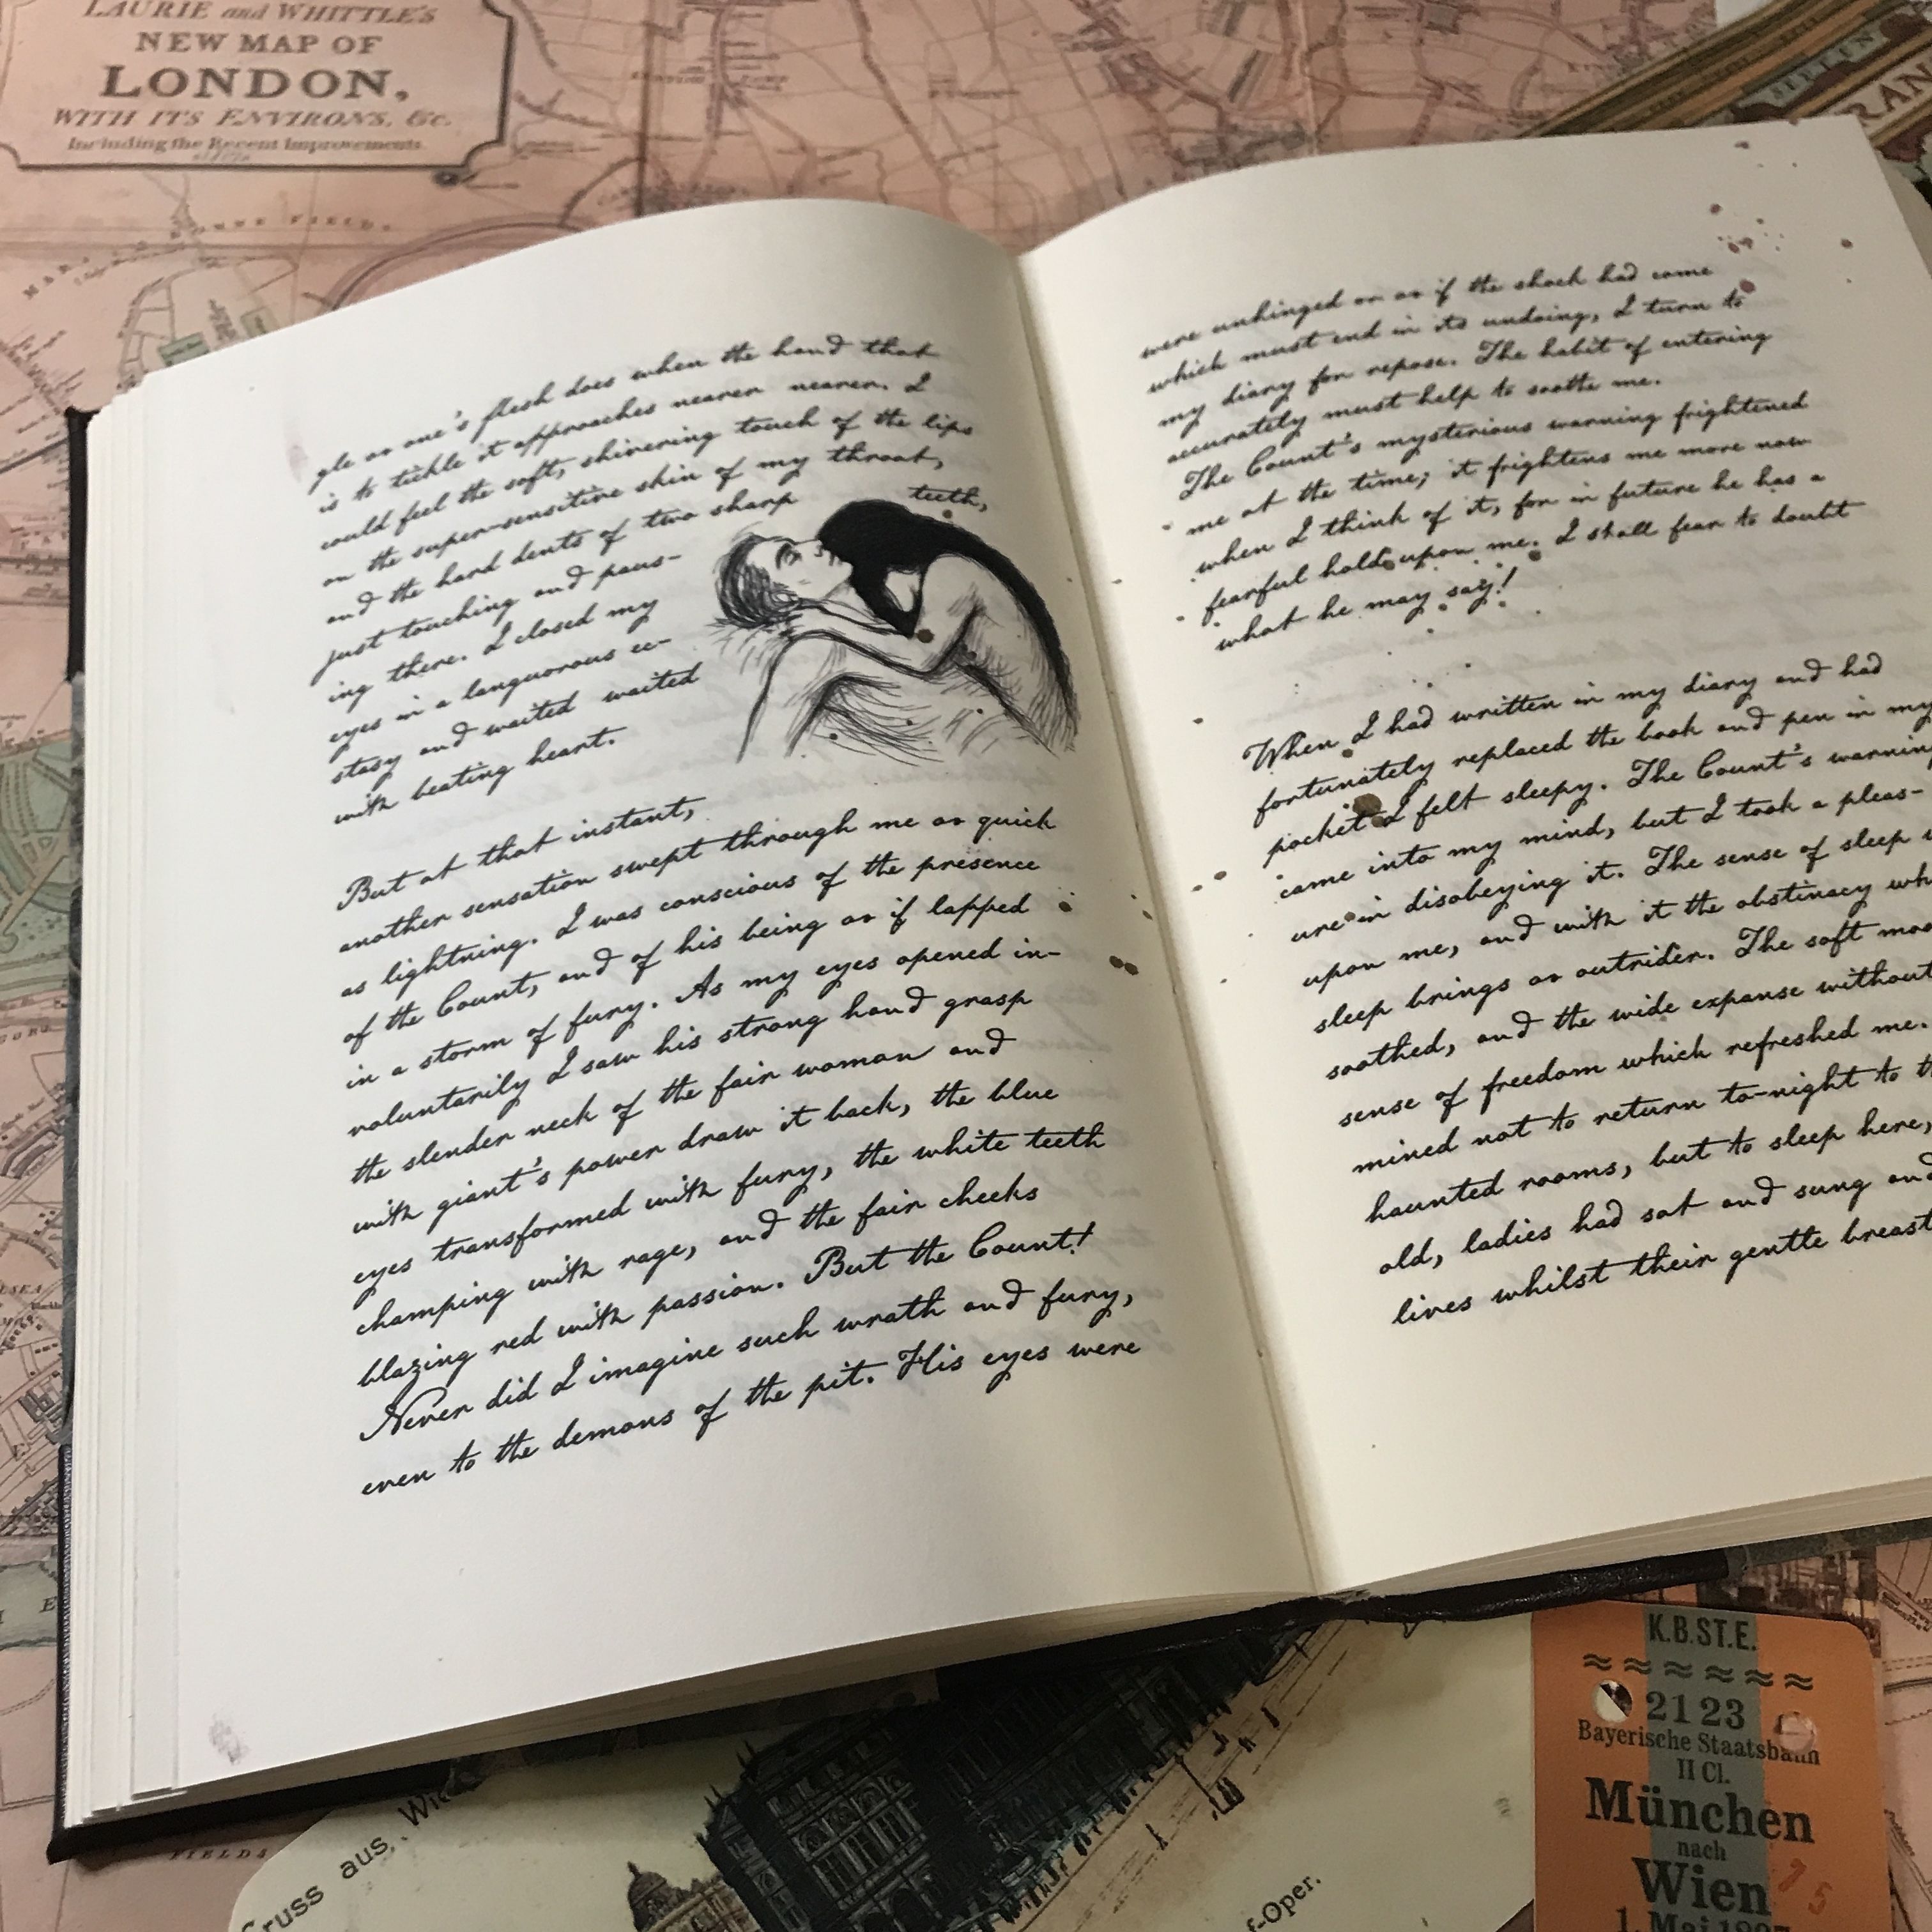 LAURIE and WHITTLE'S
NEW MAP OF
LONDON,
WITH ITS ENVIRONS, &c.
Including the Recent Improvements.
RAN
gle as one's flesh does when the hand that
is to tickle it approaches nearer nearer. I
could feel the soft, shivering touch of the lips
on the super-sensitive skin of my throat,
and the hard dents of two sharp teeth,
just touching and paus-
ing there. I closed my
eyes in a languorous ec-
stasy and waited waited
with beating heart.
But at that instant,
another sensation swept through me as quick
as lightning. I was conscious of the presence
of the Count, and of his being as if lapped
in a storm of fury. As my eyes opened in-
voluntarily I saw his strong hand grasp
the slender neck of the fair woman and
with giant's power draw it back, the blue
eyes transformed with fury, the white teeth
champing with rage, and the fair cheeks
blazing red with passion. But the Count!
Never did I imagine such wrath and fury,
even to the demons of the pit. His eyes were
were unhinged or as if the shock had come
which must end in its undoing, I turn to
my diary for repose. The habit of entering
accurately must help to soothe me.
The Count's mysterious warning frightened
me at the time; it frightens me more now
when I think of it, for in future he has a
fearful hold upon me. I shall fear to doubt
what he may say!
When I had written in my diary and had
fortunately replaced the book and pen in my
pocket I felt sleepy. The Count's warnin
came into my mind, but I took a pleas-
ure in disobeying it. The sense of sleep
upon me, and with it the obstinacy wh
sleep brings as outrider. The soft moo
soothed, and the wide expanse without
sense of freedom which refreshed me.
mined not to return to-night to t
haunted rooms, but to sleep here,
old, ladies had sat and sung and
lives whilst their gentle breast
FIELDS
Gruss aus
f-Oper.
K.B.ST.E.
2123
Bayerische Staatsbahn
II Cl.
München
nach
Wien
1. Mai 1897